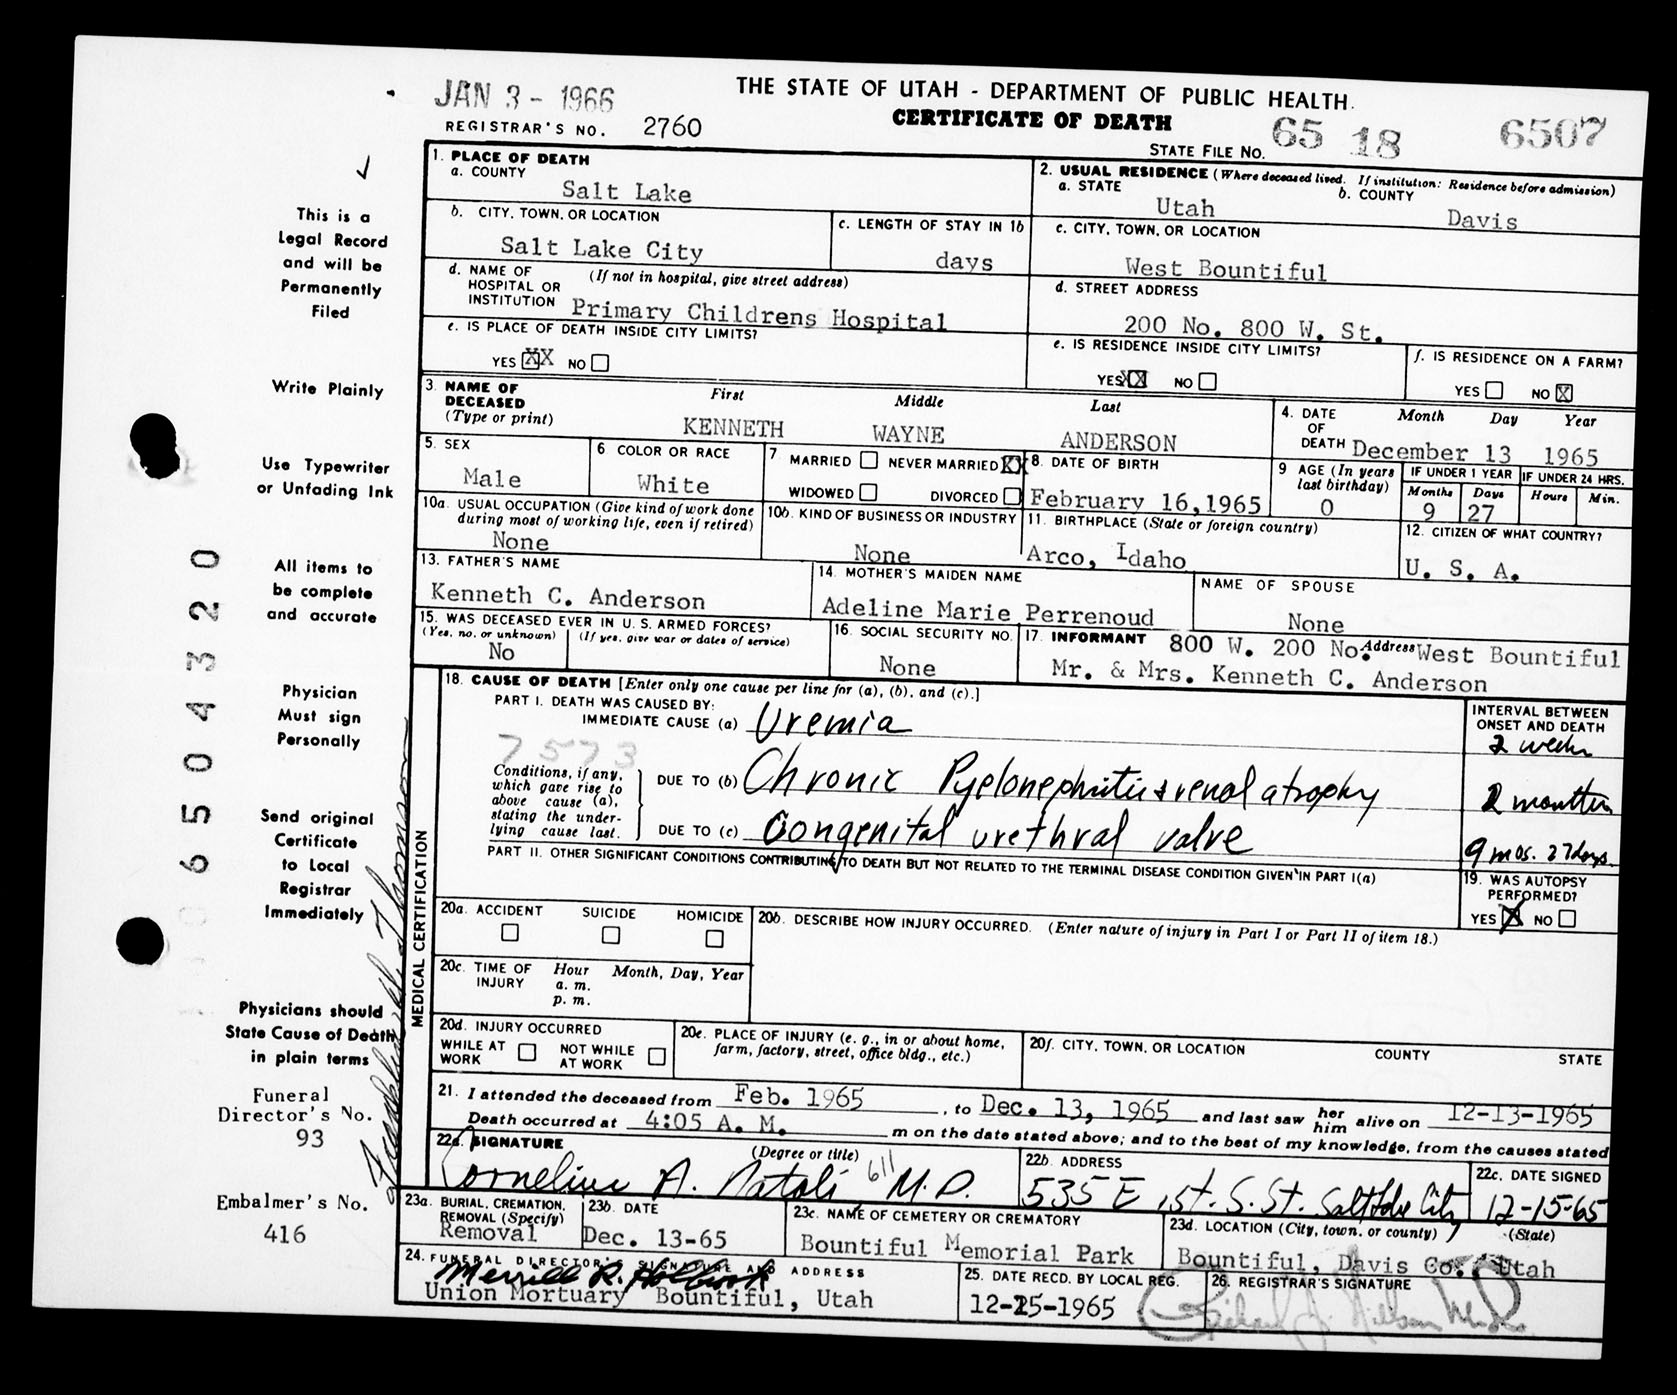 JAN 3 - 1966
THE STATE OF UTAH - DEPARTMENT OF PUBLIC HEALTH.
CERTIFICATE OF DEATH
REGISTRAR'S NO. 2760
STATE FILE NO. 65 18 6507
This is a
Legal Record
and will be
Permanently
Filed
Write Plainly
Use Typewriter
or Unfading Ink
All items to
be complete
and accurate
Physician
Must sign
Personally
Send original
Certificate
to Local
Registrar
Immediately
Physicians should
State Cause of Death
in plain terms
Funeral
Director's No.
93
Embalmer's No.
416
6504320
1. PLACE OF DEATH
a. COUNTY
Salt Lake
2. USUAL RESIDENCE (Where deceased lived. If institution: Residence before admission)
a. STATE
Utah
b. COUNTY
Davis
b. CITY, TOWN, OR LOCATION
Salt Lake City
c. LENGTH OF STAY IN 1b
days
c. CITY, TOWN, OR LOCATION
West Bountiful
d. NAME OF (If not in hospital, give street address)
HOSPITAL OR
INSTITUTION Primary Childrens Hospital
d. STREET ADDRESS
200 No. 800 W. St.
e. IS PLACE OF DEATH INSIDE CITY LIMITS?
YES XX NO
e. IS RESIDENCE INSIDE CITY LIMITS?
YES XX NO
f. IS RESIDENCE ON A FARM?
YES NO X
3. NAME OF
DECEASED
(Type or print)
First Middle Last
KENNETH WAYNE ANDERSON
4. DATE
OF
DEATH
Month Day Year
December 13 1965
5. SEX
Male
6 COLOR OR RACE
White
7 MARRIED NEVER MARRIED XX
WIDOWED DIVORCED
8. DATE OF BIRTH
February 16, 1965
9 AGE (In years
last birthday)
0
IF UNDER 1 YEAR IF UNDER 24 HRS.
Months Days Hours Min.
9 27
10a. USUAL OCCUPATION (Give kind of work done
during most of working life, even if retired)
None
10b. KIND OF BUSINESS OR INDUSTRY
None
11. BIRTHPLACE (State or foreign country)
Arco, Idaho
12. CITIZEN OF WHAT COUNTRY?
U. S. A.
13. FATHER'S NAME
Kenneth C. Anderson
14. MOTHER'S MAIDEN NAME
Adeline Marie Perrenoud
NAME OF SPOUSE
None
15. WAS DECEASED EVER IN U. S. ARMED FORCES?
(Yes, no. or unknown) (If yes, give war or dates of service)
No
16. SOCIAL SECURITY NO.
None
17. INFORMANT 800 W. 200 No. Address West Bountiful
Mr. & Mrs. Kenneth C. Anderson
MEDICAL CERTIFICATION
18. CAUSE OF DEATH [Enter only one cause per line for (a), (b), and (c).]
PART I. DEATH WAS CAUSED BY:
IMMEDIATE CAUSE (a) Uremia
7573
INTERVAL BETWEEN
ONSET AND DEATH
2 weeks
Conditions, if any,
which gave rise to
above cause (a),
stating the under-
lying cause last.
DUE TO (b) Chronic Pyelonephritis & renal atrophy
2 months
DUE TO (c) Congenital urethral valve
9 mos. 27 days.
PART II. OTHER SIGNIFICANT CONDITIONS CONTRIBUTING TO DEATH BUT NOT RELATED TO THE TERMINAL DISEASE CONDITION GIVEN IN PART I(a)
19. WAS AUTOPSY
PERFORMED?
YES X NO
20a. ACCIDENT SUICIDE HOMICIDE
20b. DESCRIBE HOW INJURY OCCURRED. (Enter nature of injury in Part I or Part II of item 18.)
20c. TIME OF
INJURY
Hour Month, Day, Year
a. m.
p. m.
20d. INJURY OCCURRED
WHILE AT
WORK
NOT WHILE
AT WORK
20e. PLACE OF INJURY (e. g., in or about home,
farm, factory, street, office bldg., etc.)
20f. CITY, TOWN, OR LOCATION COUNTY STATE
21. I attended the deceased from Feb. 1965, to Dec. 13, 1965 and last saw her him alive on 12-13-1965
Death occurred at 4:05 A. M. m on the date stated above; and to the best of my knowledge, from the causes stated
22a. SIGNATURE (Degree or title)
Cornelius A. Natoli 611 M.D.
22b. ADDRESS
535 E 1st. S. St. Salt Lake City
22c. DATE SIGNED
12-15-65
23a. BURIAL, CREMATION,
REMOVAL (Specify)
Removal
23b. DATE
Dec. 13-65
23c. NAME OF CEMETERY OR CREMATORY
Bountiful Memorial Park
23d. LOCATION (City, town, or county) (State)
Bountiful, Davis Co. Utah
24. FUNERAL DIRECTOR'S SIGNATURE AND ADDRESS
Merrill R. Holbrook
Union Mortuary Bountiful, Utah
25. DATE RECD. BY LOCAL REG.
12-15-1965
26. REGISTRAR'S SIGNATURE